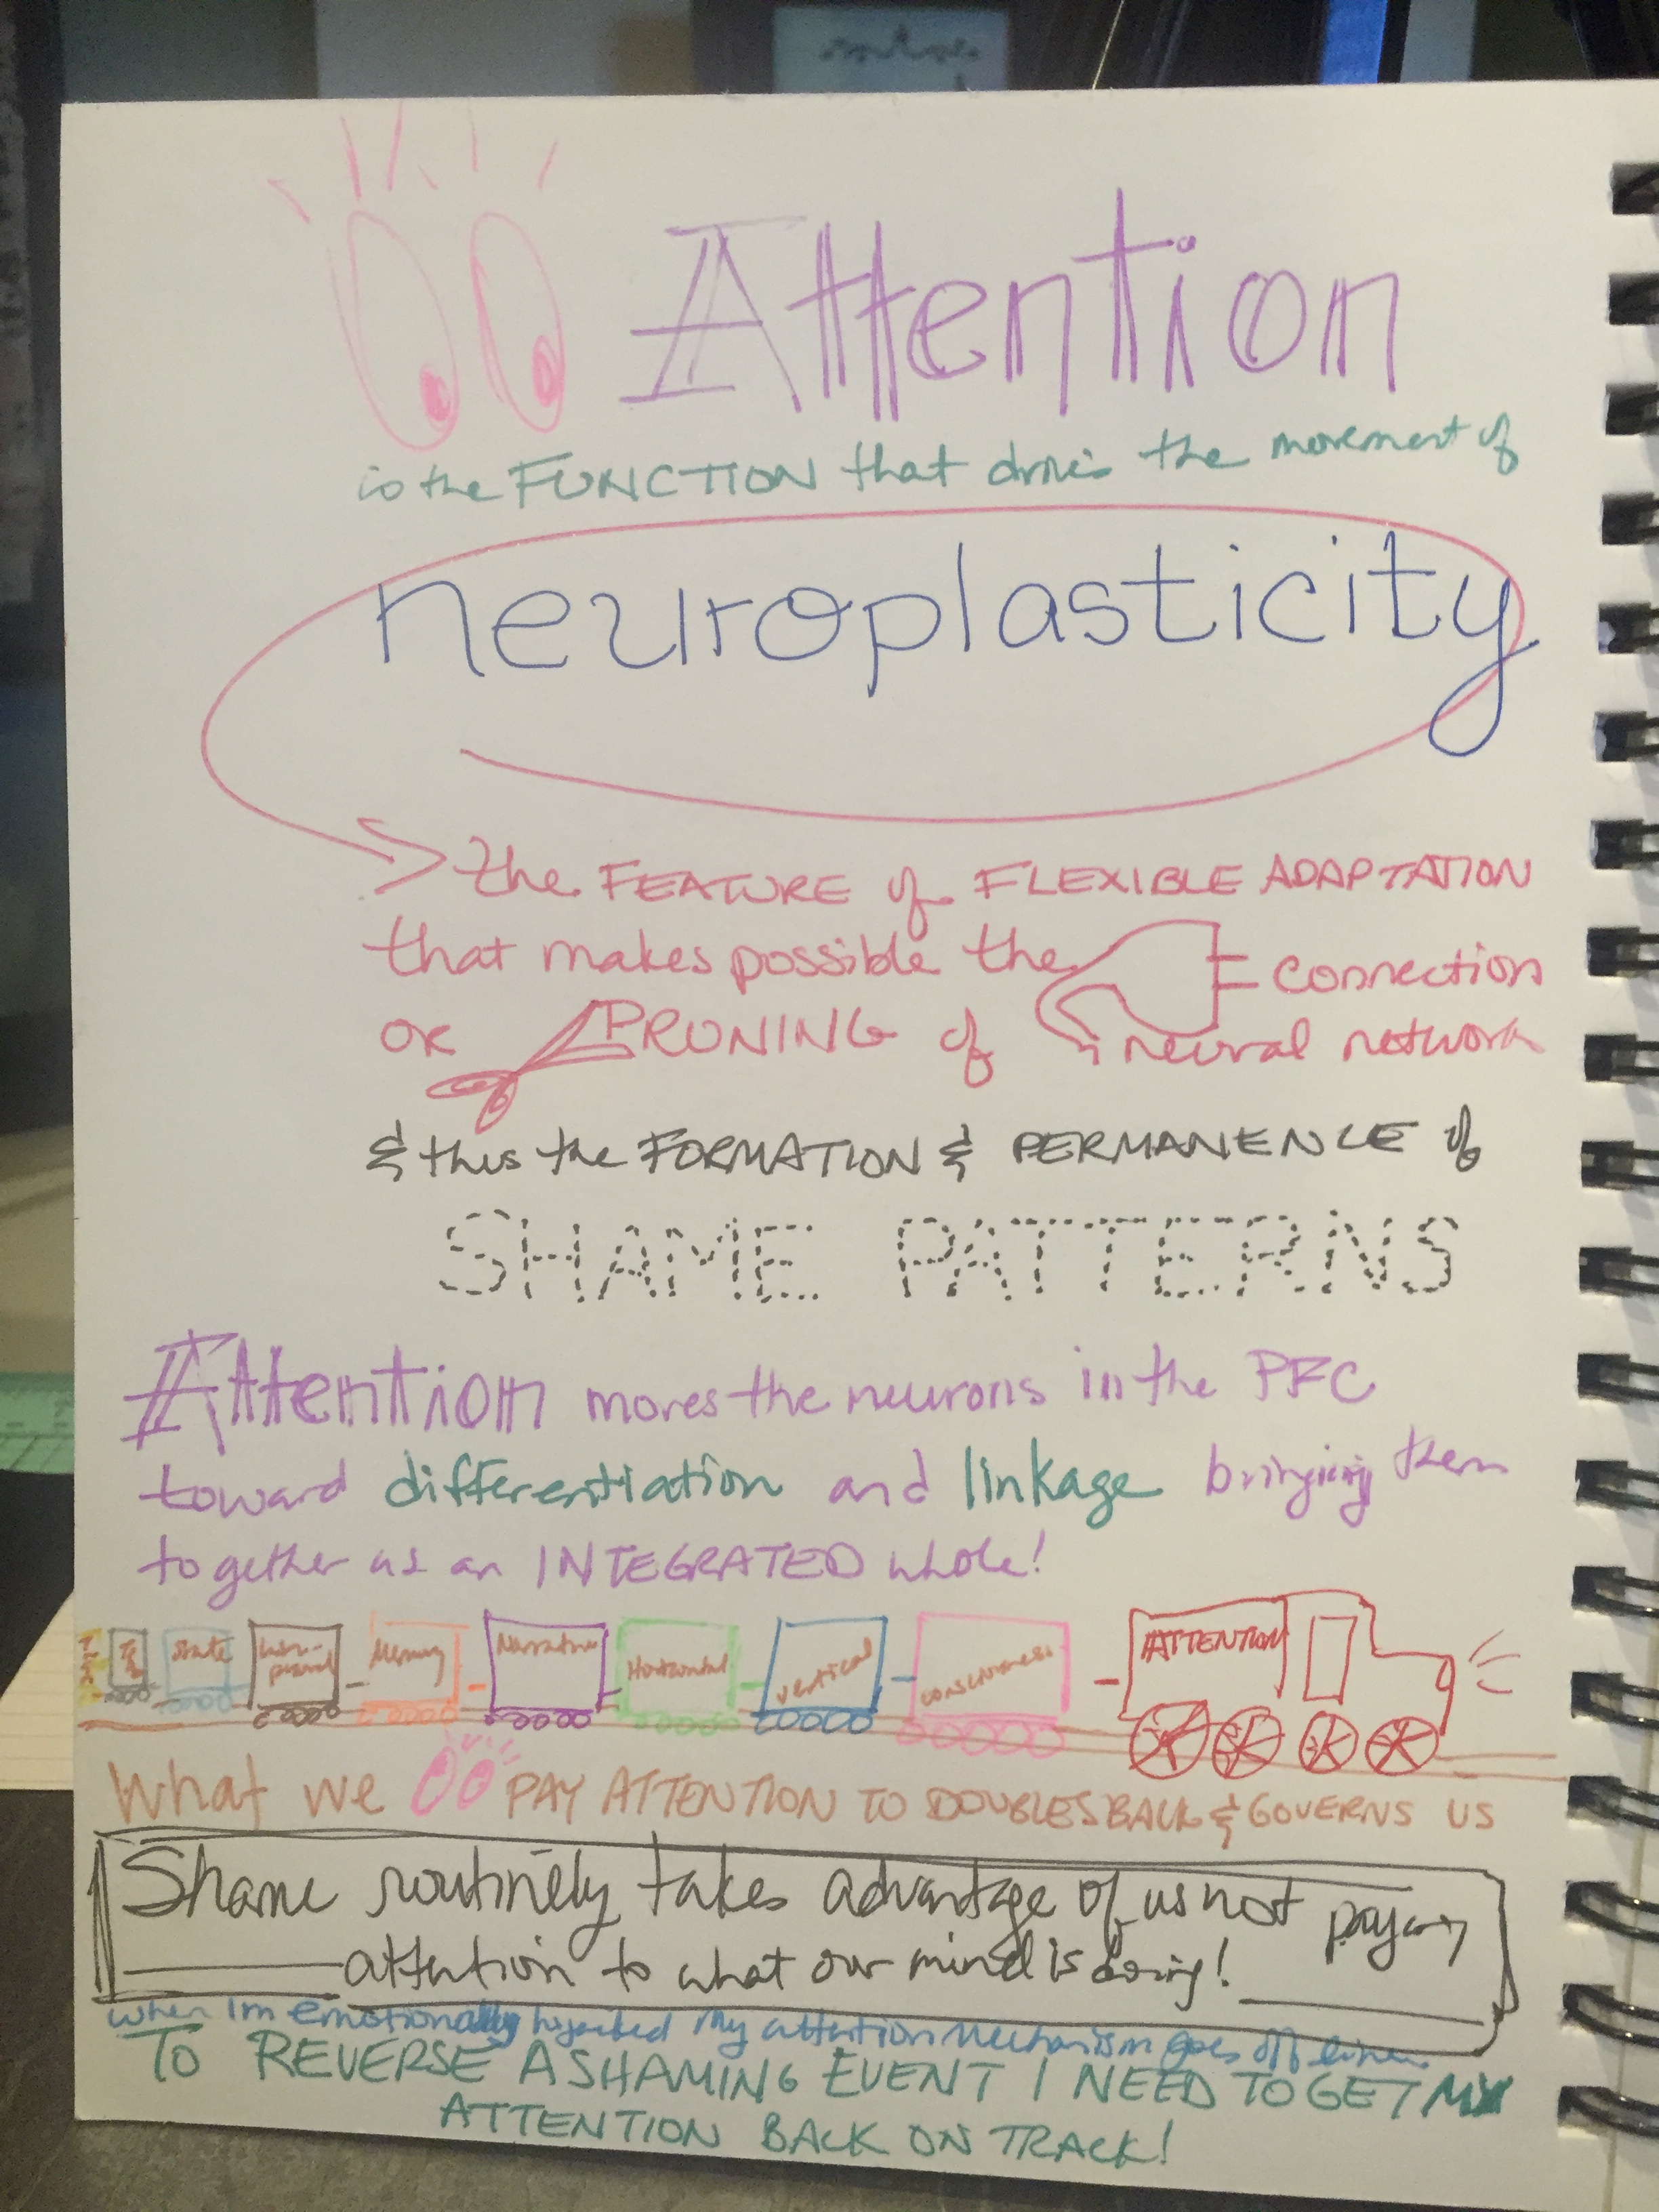 Attention
is the FUNCTION that drives the movement of
neuroplasticity
the FEATURE of FLEXIBLE ADAPTATION
that makes possible the connection
or PRUNING of neural network
& thus the FORMATION & PERMANENCE of
SHAME PATTERNS
Attention moves the neurons in the PFC
toward differentiation and linkage bringing them
together as an INTEGRATED whole!
State Memory Narrative Horizontal vertical consciousness ATTENTION
What we PAY ATTENTION TO DOUBLES BACK & GOVERNS US
Shame routinely takes advantage of us not paying
attention to what our mind is doing!
when Im emotionally hijacked My attention Mechanism goes off line
TO REVERSE A SHAMING EVENT I NEED TO GET MY
ATTENTION BACK ON TRACK!